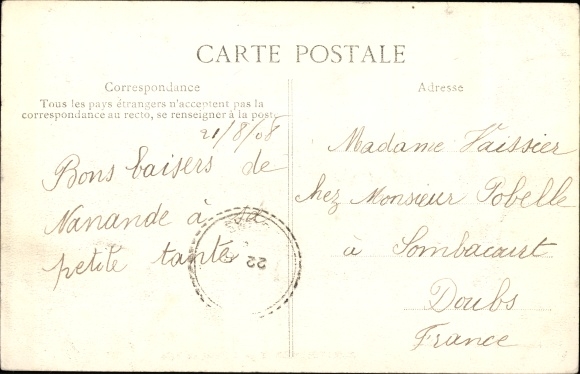 CARTE POSTALE
Correspondance
Tous les pays étrangers n'acceptent pas la
correspondance au recto, se renseigner à la poste
21/8/08
Bons baisers de
Nanande à sa
petite tante
22
Adresse
Madame Vaissier
chez Monsieur Pobelle
à Sombacourt
Doubs
France